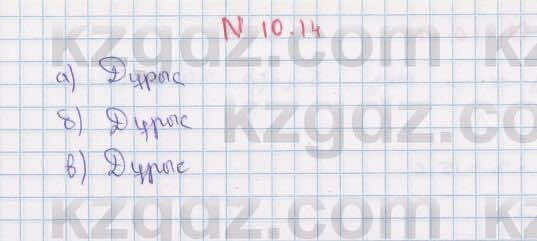 N 10.14
а) Дұрыс
б) Дұрыс
в) Дұрыс
kzgdz.com
kzgdz.com
kzgdz.com